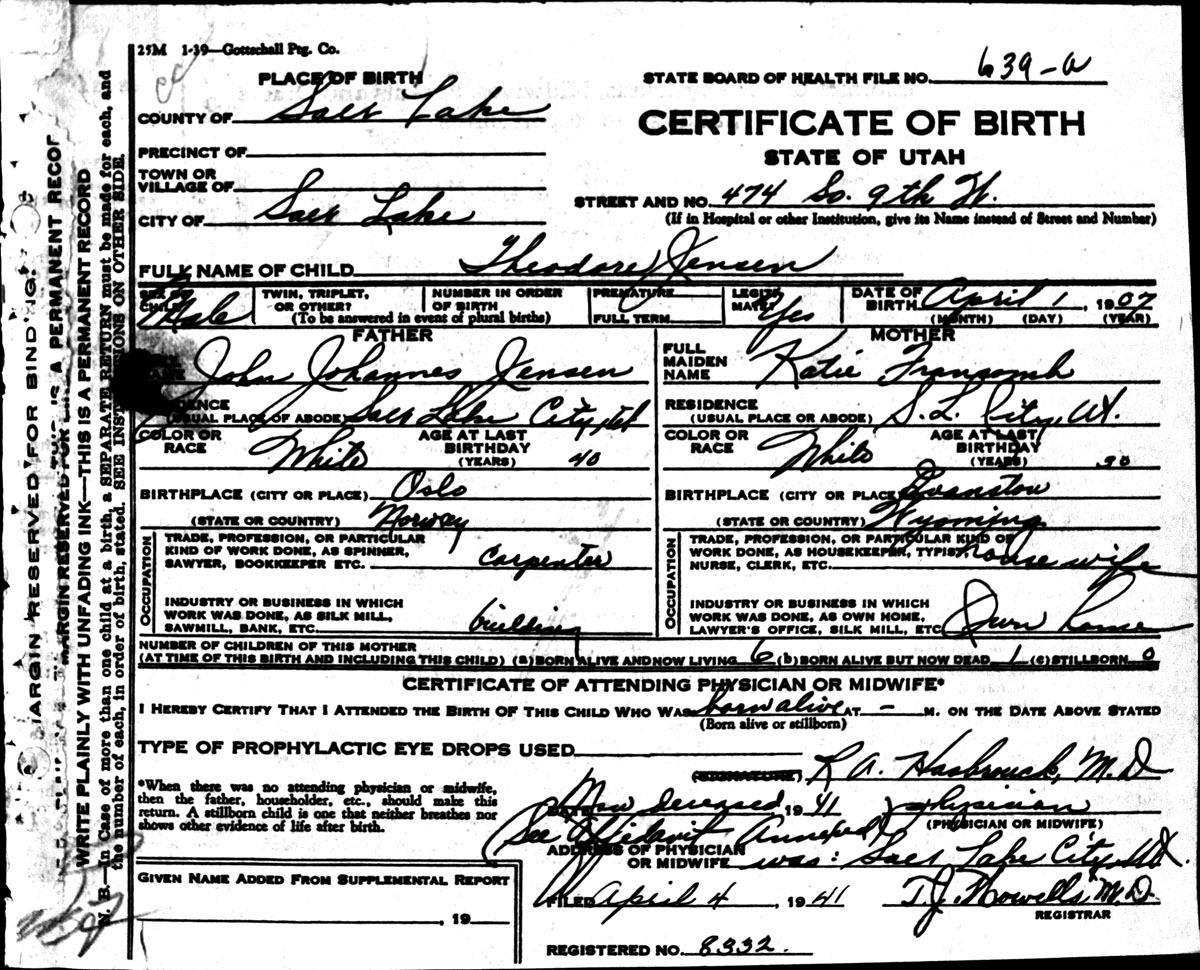 25M 1-39—Gottschall Ptg. Co.
639-a
PLACE OF BIRTH
STATE BOARD OF HEALTH FILE NO.
COUNTY OF Salt Lake
CERTIFICATE OF BIRTH
PRECINCT OF
STATE OF UTAH
TOWN OR
VILLAGE OF
STREET AND NO. 474 So. 9th W.
CITY OF Salt Lake
(If in Hospital or other Institution, give its Name instead of Street and Number)
FULL NAME OF CHILD Theodore Jensen
SEX OF CHILD Male
TWIN, TRIPLET, OR OTHER?
NUMBER IN ORDER OF BIRTH
(To be answered in event of plural births)
PREMATURE
FULL TERM
LEGITIMATE? Yes
DATE OF BIRTH April 1, 1902
(MONTH) (DAY) (YEAR)
FATHER
John Johannes Jensen
(USUAL PLACE OF ABODE) Salt Lake City, Ut
COLOR OR RACE White
AGE AT LAST BIRTHDAY (YEARS) 40
BIRTHPLACE (CITY OR PLACE) Oslo
(STATE OR COUNTRY) Norway
OCCUPATION
TRADE, PROFESSION, OR PARTICULAR
KIND OF WORK DONE, AS SPINNER,
SAWYER, BOOKKEEPER ETC. Carpenter
INDUSTRY OR BUSINESS IN WHICH
WORK WAS DONE, AS SILK MILL,
SAWMILL, BANK, ETC. building
MOTHER
FULL MAIDEN NAME Katie Franscomb
RESIDENCE
(USUAL PLACE OR ABODE) S. L. City, Ut.
COLOR OR RACE White
AGE AT LAST BIRTHDAY (YEARS) 30
BIRTHPLACE (CITY OR PLACE) Evanston
(STATE OR COUNTRY) Wyoming
OCCUPATION
TRADE, PROFESSION, OR PARTICULAR KIND OF
WORK DONE, AS HOUSEKEEPER, TYPIST,
NURSE, CLERK, ETC. housewife
INDUSTRY OR BUSINESS IN WHICH
WORK WAS DONE, AS OWN HOME,
LAWYER'S OFFICE, SILK MILL, ETC. Own home
NUMBER OF CHILDREN OF THIS MOTHER
(AT TIME OF THIS BIRTH AND INCLUDING THIS CHILD) (a) BORN ALIVE AND NOW LIVING 6 (b) BORN ALIVE BUT NOW DEAD 1 (c) STILLBORN 0
CERTIFICATE OF ATTENDING PHYSICIAN OR MIDWIFE*
I HEREBY CERTIFY THAT I ATTENDED THE BIRTH OF THIS CHILD WHO WAS born alive AT - M. ON THE DATE ABOVE STATED
(Born alive or stillborn)
TYPE OF PROPHYLACTIC EYE DROPS USED
(SIGNATURE) R A. Hasbrouck, M.D
*When there was no attending physician or midwife,
then the father, householder, etc., should make this
return. A stillborn child is one that neither breathes nor
shows other evidence of life after birth.
Now deceased, 1941 physician
(PHYSICIAN OR MIDWIFE)
(See Affidavit Annexed)
ADDRESS OF PHYSICIAN
OR MIDWIFE was: Salt Lake City, Ut.
GIVEN NAME ADDED FROM SUPPLEMENTAL REPORT
, 19
FILED April 4, 1941 T. J. Howells, M.D.
REGISTRAR
REGISTERED NO. 8332.
MARGIN RESERVED FOR BINDING.
WRITE PLAINLY WITH UNFADING INK—THIS IS A PERMANENT RECORD
N. B.—In Case of more than one child at a birth, a SEPARATE RETURN must be made for each, and
the number of each, in order of birth, stated. SEE INSTRUCTIONS ON OTHER SIDE.